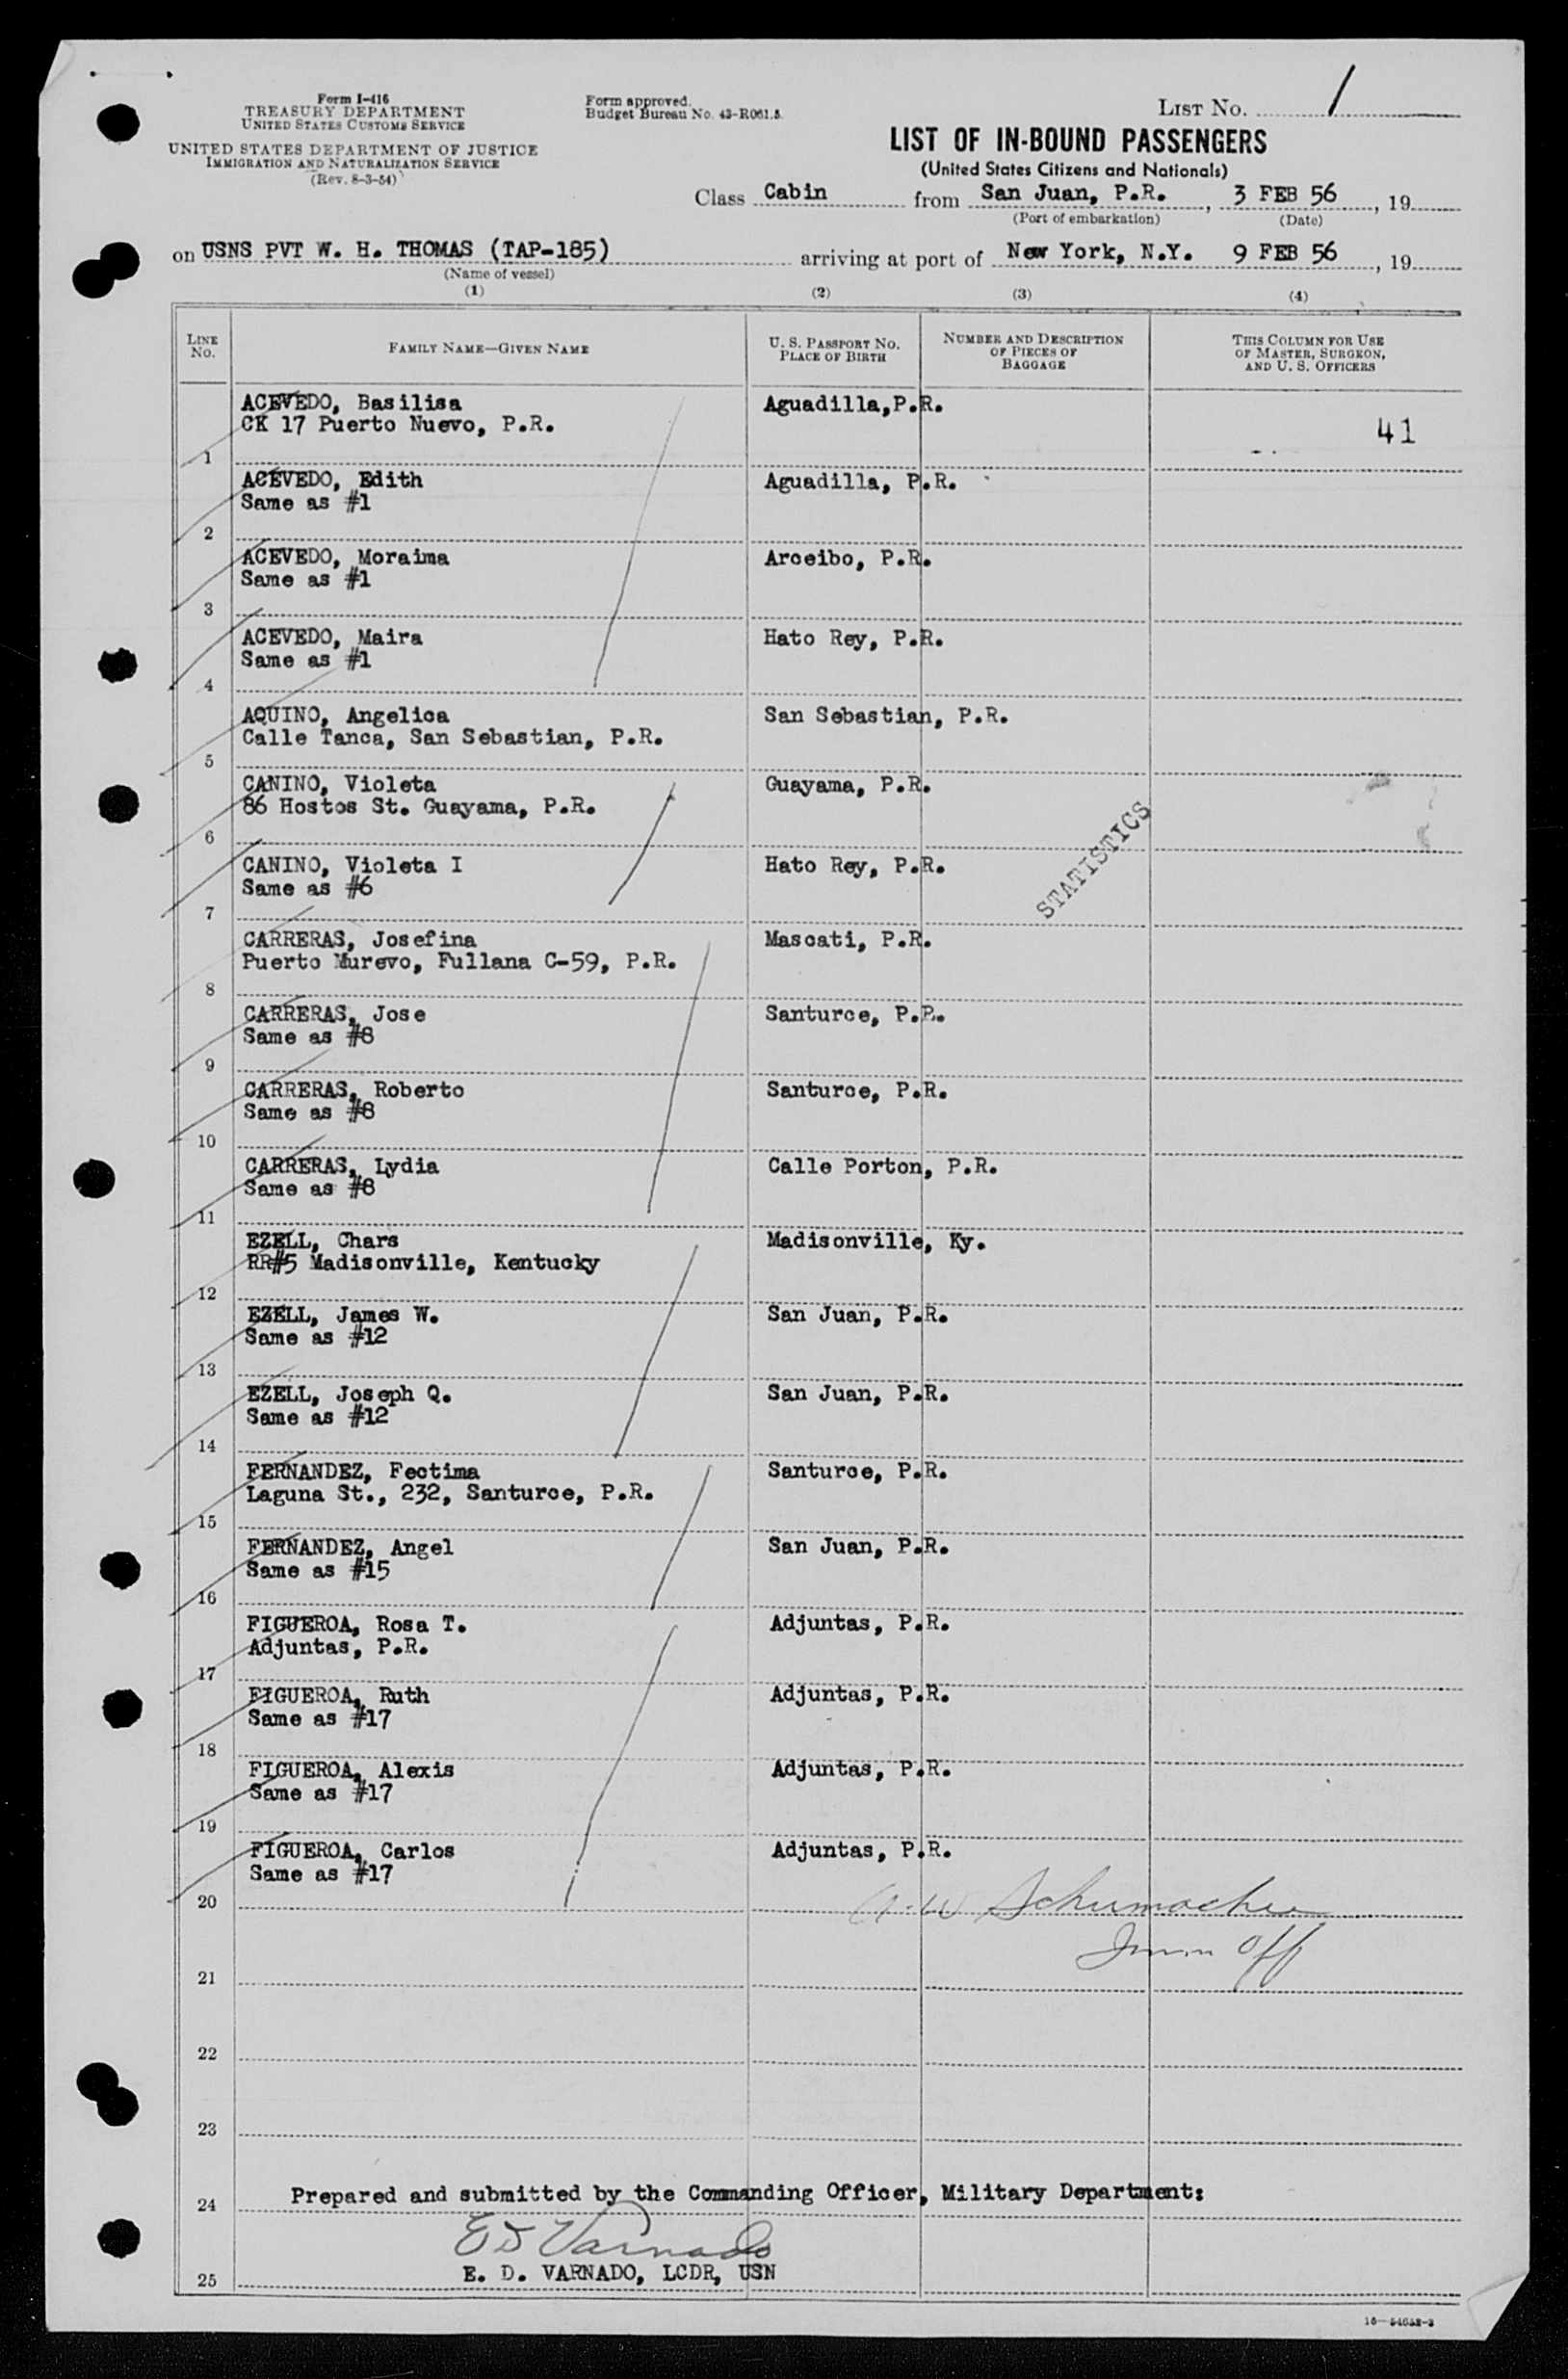 Form I-416
TREASURY DEPARTMENT
UNITED STATES CUSTOMS SERVICE
UNITED STATES DEPARTMENT OF JUSTICE
IMMIGRATION AND NATURALIZATION SERVICE
(Rev. 8-3-54)
Form approved.
Budget Bureau No. 43-R061.5.
LIST NO. 1
LIST OF IN-BOUND PASSENGERS
(United States Citizens and Nationals)
Class Cabin from San Juan, P.R., 3 FEB 56, 19
(Port of embarkation) (Date)
on USNS PVT W. H. THOMAS (TAP-185) arriving at port of New York, N.Y. 9 FEB 56, 19
(Name of vessel)
(1) (2) (3) (4)
LINE NO. FAMILY NAME—GIVEN NAME U. S. PASSPORT NO. PLACE OF BIRTH NUMBER AND DESCRIPTION OF PIECES OF BAGGAGE THIS COLUMN FOR USE OF MASTER, SURGEON, AND U. S. OFFICERS
ACEVEDO, Basilisa Aguadilla,P.R.
CK 17 Puerto Nuevo, P.R. 41
1
ACEVEDO, Edith Aguadilla, P.R.
Same as #1
2
ACEVEDO, Moraima Arceibo, P.R.
Same as #1
3
ACEVEDO, Maira Hato Rey, P.R.
Same as #1
4
AQUINO, Angelica San Sebastian, P.R.
Calle Tanca, San Sebastian, P.R.
5
CANINO, Violeta Guayama, P.R.
86 Hostos St. Guayama, P.R.
6
STATISTICS
CANINO, Violeta I Hato Rey, P.R.
Same as #6
7
CARRERAS, Josefina Mascati, P.R.
Puerto Murevo, Fullana C-59, P.R.
8
CARRERAS, Jose Santurce, P.R.
Same as #8
9
CARRERAS, Roberto Santurce, P.R.
Same as #8
10
CARRERAS, Lydia Calle Porton, P.R.
Same as #8
11
EZELL, Chars Madisonville, Ky.
RR#5 Madisonville, Kentucky
12
EZELL, James W. San Juan, P.R.
Same as #12
13
EZELL, Joseph Q. San Juan, P.R.
Same as #12
14
FERNANDEZ, Fectima Santurce, P.R.
Laguna St., 232, Santurce, P.R.
15
FERNANDEZ, Angel San Juan, P.R.
Same as #15
16
FIGUEROA, Rosa T. Adjuntas, P.R.
Adjuntas, P.R.
17
FIGUEROA, Ruth Adjuntas, P.R.
Same as #17
18
FIGUEROA, Alexis Adjuntas, P.R.
Same as #17
19
FIGUEROA, Carlos Adjuntas, P.R.
Same as #17
20 Schumacher
Imm Off
21
22
23
Prepared and submitted by the Commanding Officer, Military Department:
24
E D Varnado
E. D. VARNADO, LCDR, USN
25